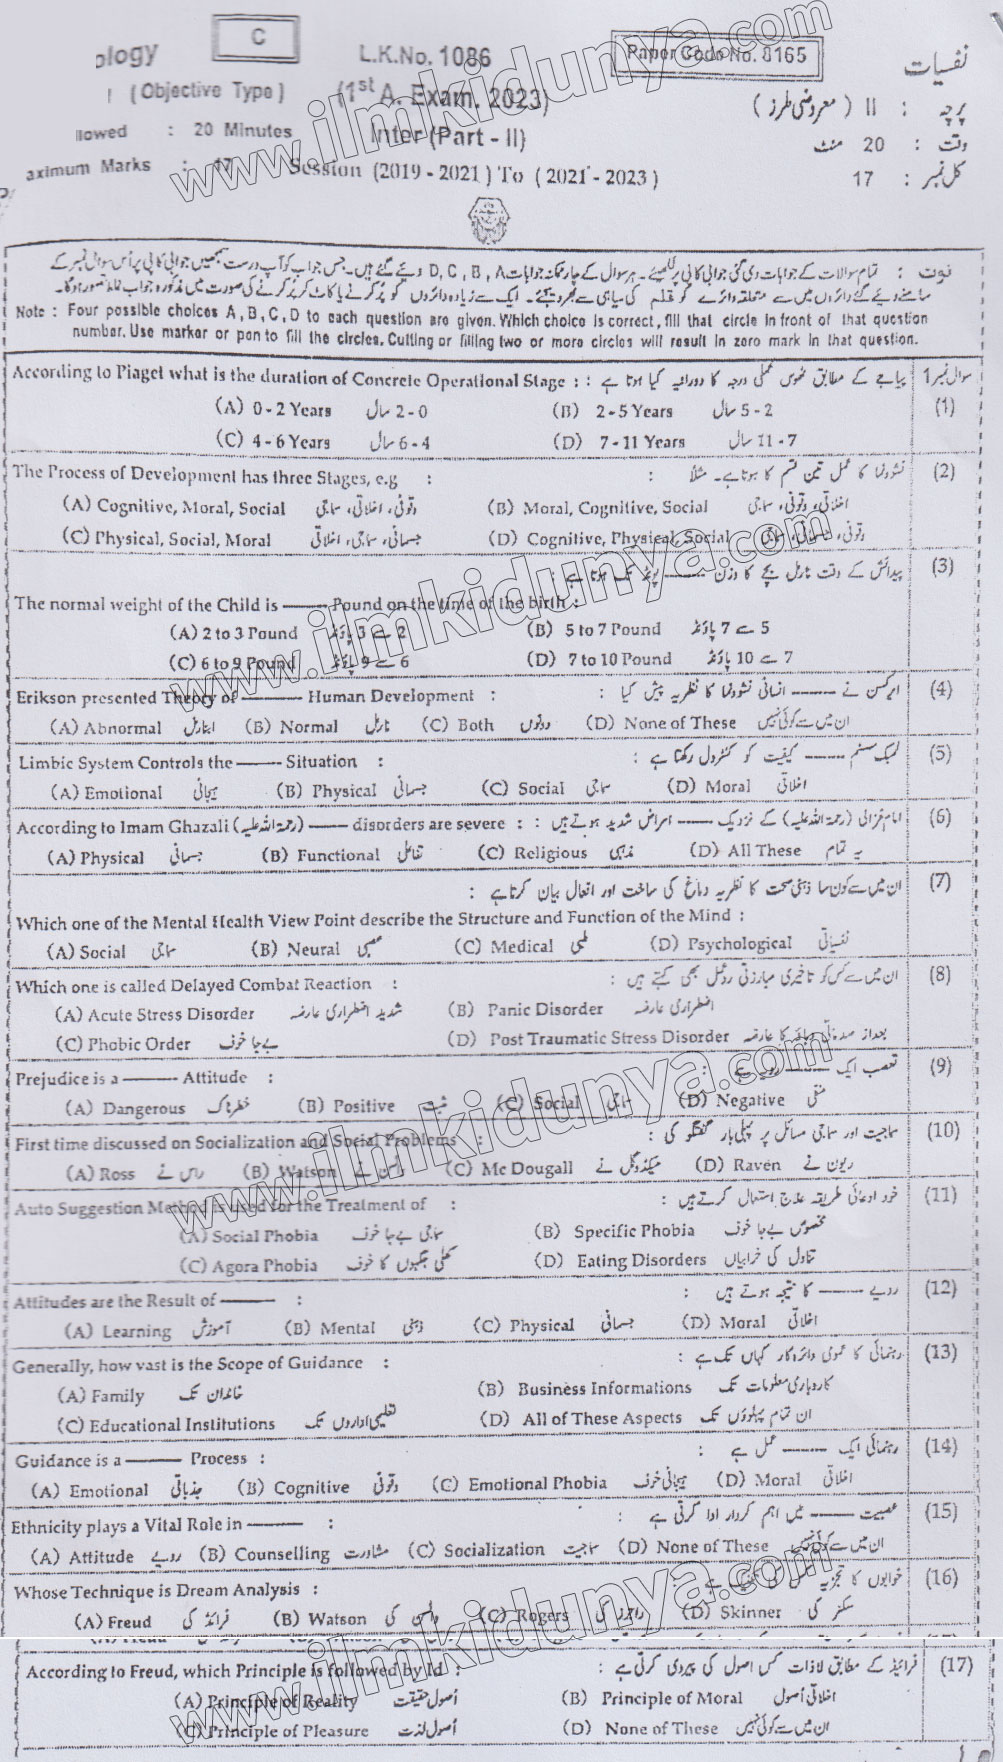 ology C L.K.No. 1086 Paper Code No. 8165 نفسیات
(Objective Type) (1st A. Exam. 2023) پرچہ : II (معروضی طرز)
llowed : 20 Minutes Inter (Part - II) وقت : 20 منٹ
aximum Marks : 17 Session (2019 - 2021) To (2021 - 2023) کل نمبر : 17
نوٹ : تمام سوالات کے جوابات دی گئی جوابی کاپی پر لکھیے۔ ہر سوال کے چار ممکنہ جوابات D, C, B, A دیئے گئے ہیں۔ جس جواب کو آپ درست سمجھیں جوابی کاپی پر اُس سوال نمبر کے
سامنے دیئے گئے دائروں میں سے متعلقہ دائرے کو قلم کی سیاہی سے بھر دیجئے۔ ایک سے زیادہ دائروں کو پُر کرنے یا کاٹ کر پُر کرنے کی صورت میں مذکورہ جواب غلط تصور ہوگا۔
Note : Four possible choices A, B, C, D to each question are given. Which choice is correct, fill that circle in front of that question
number. Use marker or pen to fill the circles. Cutting or filling two or more circles will result in zero mark in that question.
According to Piaget what is the duration of Concrete Operational Stage : پیاجے کے مطابق ٹھوس عملی درجہ کا دورانیہ کیا ہوتا ہے : سوال نمبر 1
(A) 0 - 2 Years 0 - 2 سال (B) 2 - 5 Years 2 - 5 سال (1)
(C) 4 - 6 Years 4 - 6 سال (D) 7 - 11 Years 7 - 11 سال
The Process of Development has three Stages, e.g : نشوونما کا عمل تین قسم کا ہوتا ہے۔ مثلاً : (2)
(A) Cognitive, Moral, Social وقوفی، اخلاقی، سماجی (B) Moral, Cognitive, Social اخلاقی، وقوفی، سماجی
(C) Physical, Social, Moral جسمانی، سماجی، اخلاقی (D) Cognitive, Physical, Social وقوفی، جسمانی، سماجی
پیدائش کے وقت نارمل بچے کا وزن ——— پونڈ تک ہوتا ہے : (3)
The normal weight of the Child is ——— Pound on the time of the birth :
(A) 2 to 3 Pound 2 سے 3 پاؤنڈ (B) 5 to 7 Pound 5 سے 7 پاؤنڈ
(C) 6 to 9 Pound 6 سے 9 پاؤنڈ (D) 7 to 10 Pound 7 سے 10 پاؤنڈ
Erikson presented Theory of ——— Human Development : ایرکسن نے ——— انسانی نشوونما کا نظریہ پیش کیا : (4)
(A) Abnormal ابنارمل (B) Normal نارمل (C) Both دونوں (D) None of These ان میں سے کوئی نہیں
Limbic System Controls the ——— Situation : لمبک سسٹم ——— کیفیت کو کنٹرول رکھتا ہے : (5)
(A) Emotional ہیجانی (B) Physical جسمانی (C) Social سماجی (D) Moral اخلاقی
According to Imam Ghazali (رحمۃ اللہ علیہ) ——— disorders are severe : امام غزالی (رحمۃ اللہ علیہ) کے نزدیک ——— امراض شدید ہوتے ہیں : (6)
(A) Physical جسمانی (B) Functional تفاعلی (C) Religious مذہبی (D) All These یہ تمام
ان میں سے کون سا ذہنی صحت کا نظریہ دماغ کی ساخت اور افعال بیان کرتا ہے : (7)
Which one of the Mental Health View Point describe the Structure and Function of the Mind :
(A) Social سماجی (B) Neural عصبی (C) Medical طبی (D) Psychological نفسیاتی
Which one is called Delayed Combat Reaction : ان میں سے کس کو تاخیری مبارزتی ردعمل بھی کہتے ہیں : (8)
(A) Acute Stress Disorder شدید اضطراری عارضہ (B) Panic Disorder اضطراری عارضہ
(C) Phobic Order بے جا خوف (D) Post Traumatic Stress Disorder بعد از صدماتی دباؤ کا عارضہ
Prejudice is a ——— Attitude : تعصب ایک ——— رویہ ہے : (9)
(A) Dangerous خطرناک (B) Positive مثبت (C) Social سماجی (D) Negative منفی
First time discussed on Socialization and Social Problems : سماجیت اور سماجی مسائل پر پہلی بار گفتگو کی : (10)
(A) Ross راس نے (B) Watson واٹسن نے (C) Mc Dougall میکڈوگل نے (D) Raven ریون نے
Auto Suggestion Method is used for the Treatment of : خود ادعائی طریقہ علاج استعمال کرتے ہیں : (11)
(A) Social Phobia سماجی بے جا خوف (B) Specific Phobia مخصوص بے جا خوف
(C) Agora Phobia کھلی جگہوں کا خوف (D) Eating Disorders تناول کی خرابیاں
Attitudes are the Result of ——— : رویے ——— کا نتیجہ ہوتے ہیں : (12)
(A) Learning آموزش (B) Mental ذہنی (C) Physical جسمانی (D) Moral اخلاقی
Generally, how vast is the Scope of Guidance : رہنمائی کا عمومی دائرہ کار کہاں تک ہے : (13)
(A) Family خاندان تک (B) Business Informations کاروباری معلومات تک
(C) Educational Institutions تعلیمی اداروں تک (D) All of These Aspects ان تمام پہلوؤں تک
Guidance is a ——— Process : رہنمائی ایک ——— عمل ہے : (14)
(A) Emotional جذباتی (B) Cognitive وقوفی (C) Emotional Phobia ہیجانی خوف (D) Moral اخلاقی
Ethnicity plays a Vital Role in ——— : عصبیت ——— میں اہم کردار ادا کرتی ہے : (15)
(A) Attitude رویے (B) Counselling مشاورت (C) Socialization سماجیت (D) None of These ان میں سے کوئی نہیں
Whose Technique is Dream Analysis : خوابوں کا تجزیہ کس کی تکنیک ہے : (16)
(A) Freud فرائڈ کی (B) Watson واٹسن کی (C) Rogers راجرز کی (D) Skinner سکنر کی
According to Freud, which Principle is followed by Id : فرائیڈ کے مطابق لاذات کس اصول کی پیروی کرتی ہے : (17)
(A) Principle of Reality اُصول حقیقت (B) Principle of Moral اخلاقی اُصول
(C) Principle of Pleasure اُصول لذت (D) None of These ان میں سے کوئی نہیں
www.ilmkidunya.com
www.ilmkidunya.com
www.ilmkidunya.com
www.ilmkidunya.com